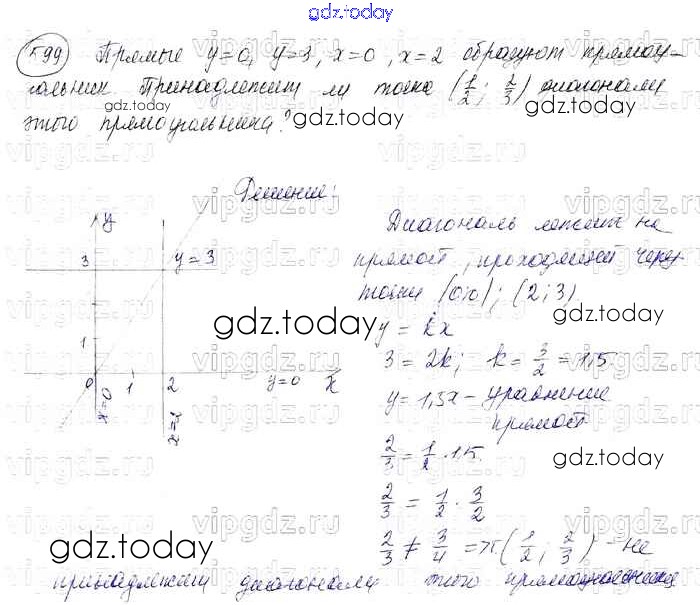 gdz.today
599 Прямые y=0, y=3, x=0, x=2 образуют прямоу-
гольник. Принадлежит ли точка (1/2; 2/3) диагонали
gdz.today
этого прямоугольника?
gdz.today
vipgdz.ru
Решение:
y
3
y=3
1
0
1
2
y=0
x
x=0
x=2
gdz.today
Диагональ лежит на
прямой, проходящей через
точки (0;0); (2;3)
y = kx
gdz.today
3 = 2k; k = 3/2 = 1,5
y = 1,5x - уравнение
прямой
2/3 = 1/2 · 1,5
gdz.today
2/3 = 1/2 · 3/2
2/3 ≠ 3/4 => т.(1/2; 2/3) - не
gdz.today
принадлежит диагонали этого прямоугольника